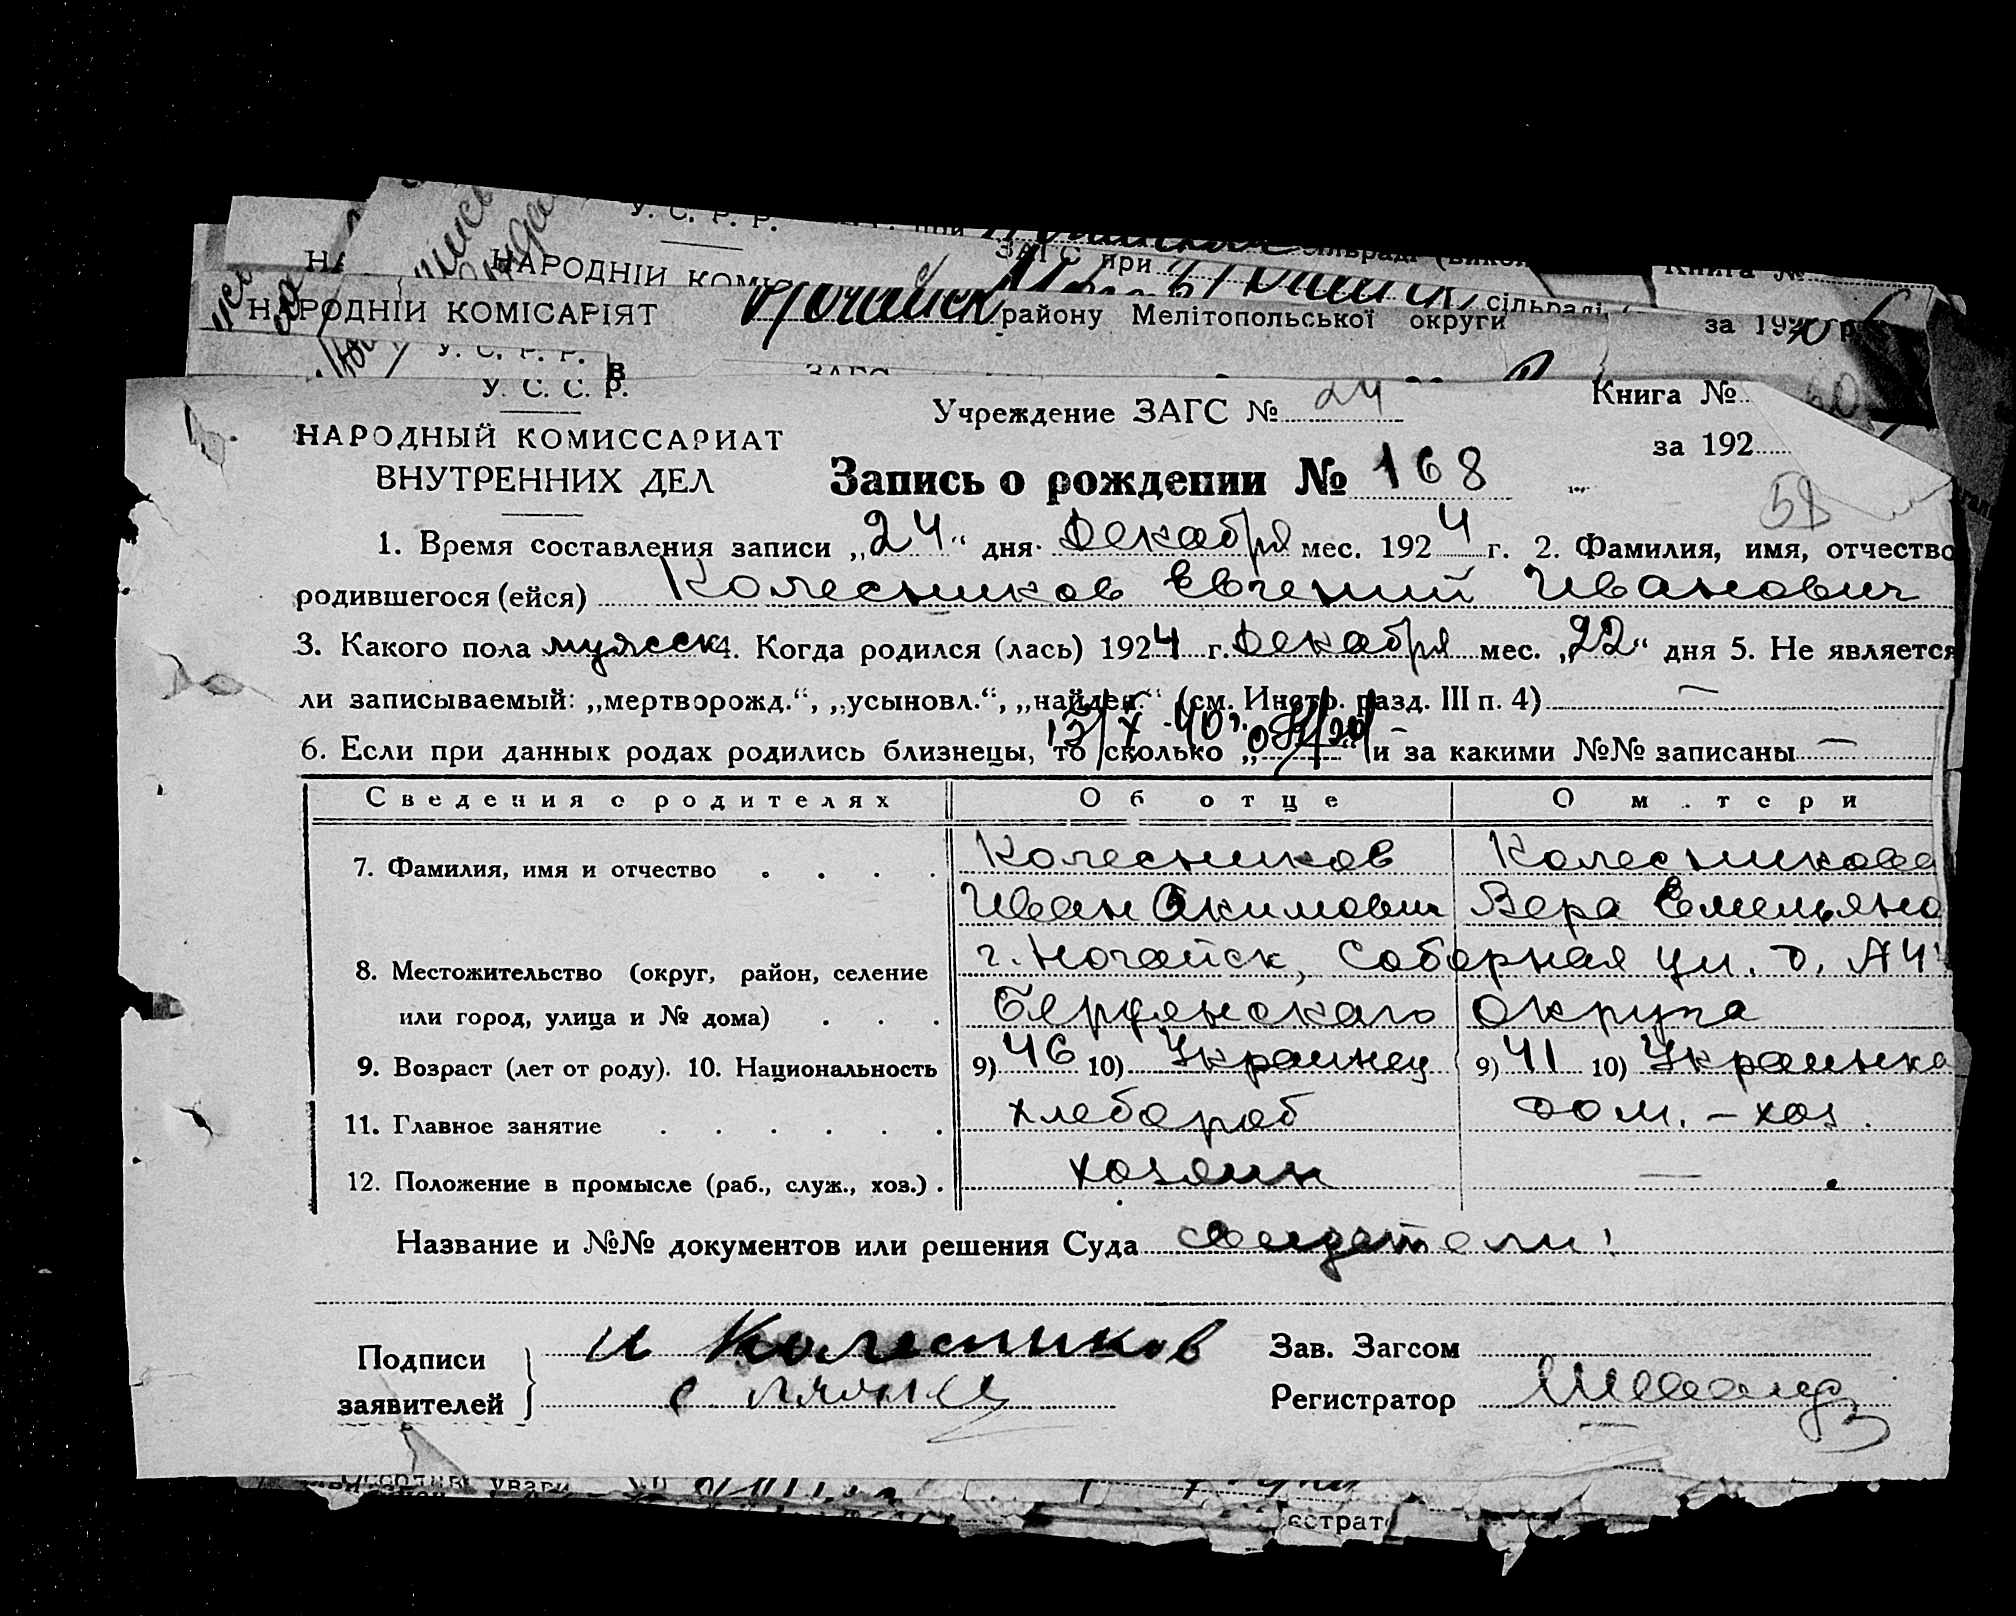 У. С. Р. Р.
ЗАГС при
НАРОДНІЙ
НАРОДНІЙ КОМІСАРІЯТ Ногайськ району Мелітопольської округи за 192
У. С. Р. Р.
У. С. С. Р.
НАРОДНЫЙ КОМИССАРИАТ
ВНУТРЕННИХ ДЕЛ
Учреждение ЗАГС № 24
Книга №
за 192
Запись о рождении № 168
58
1. Время составления записи „24“ дня Декабря мес. 1924 г. 2. Фамилия, имя, отчество
родившегося (ейся) Колесников Евгений Иванович
3. Какого пола мужск 4. Когда родился (лась) 1924 г. Декабря мес. „22“ дня 5. Не является
ли записываемый: „мертворожд.“, „усыновл.“, „найден.“ (см. Инстр. разд. III п. 4) —
6. Если при данных родах родились близнецы, то сколько „ “ и за какими №№ записаны —
Сведения о родителях Об отце О матери
7. Фамилия, имя и отчество Колесников Колесникова
Иван Акимович Вера Емельяно
8. Местожительство (округ, район, селение г. Ногайск, Соборная ул. д.
или город, улица и № дома) Бердянскаго округа
9. Возраст (лет от роду). 10. Национальность 9) 46 10) Украинец 9) 41 10) Украинка
11. Главное занятие хлебороб дом. – хоз.
12. Положение в промысле (раб., служ., хоз.) хозяин —
Название и №№ документов или решения Суда свидетели:
Подписи заявителей
И Колесников
Зав. Загсом
Регистратор